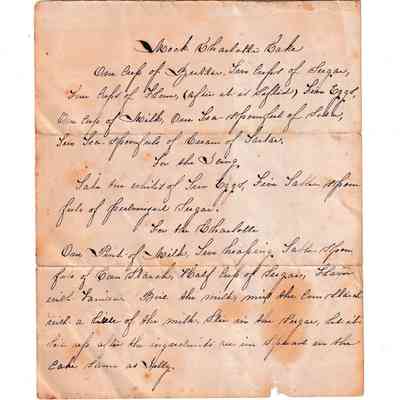 Mock Charlotte Cake
One Cup of Butter, Two Cups of Sugar,
Four Cups of Flour, (after it is Sifted) Five Eggs,
One Cup of Milk, One Tea Spoonful of Soda,
Two Tea Spoonfuls of Cream of Tartar.
For the Icing.
Take the whites of Two Eggs, Five Table Spoon
fuls of Pulverized Sugar.
For the Charlotte
One Pint of Milk, Two heaping Table Spoon
fuls of Corn Starch, Half Cup of Sugar, Flavor
with Vanilla Boil the milk, mix the Corn Starch
with a little of the milk, Stir in the Sugar, Let it
boil up after the ingredients are in Spread on the
Cake Same as Jelly.